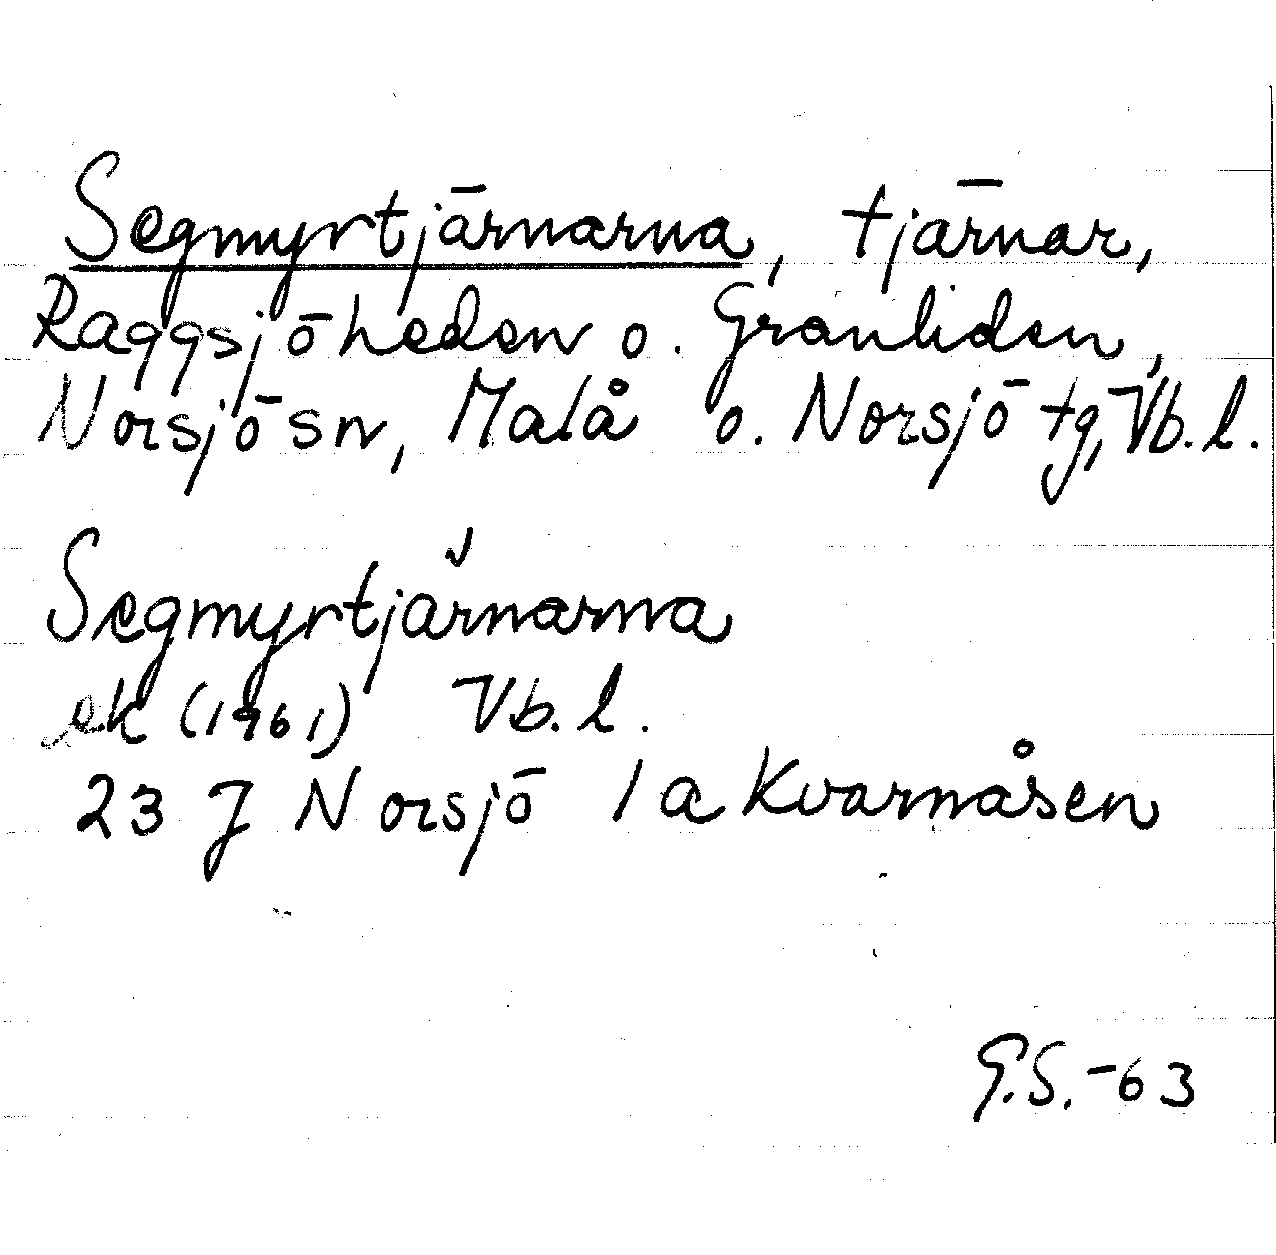 Segmyrtjärnarna, tjärnar,
Raggsjöheden o. Granliden,
Norsjö sn, Malå o. Norsjö tg, Vb. l.
Segmyrtjärnarna
ek (1961) Vb. l.
23 J Norsjö 1 a Kvarnåsen
G.S. -63